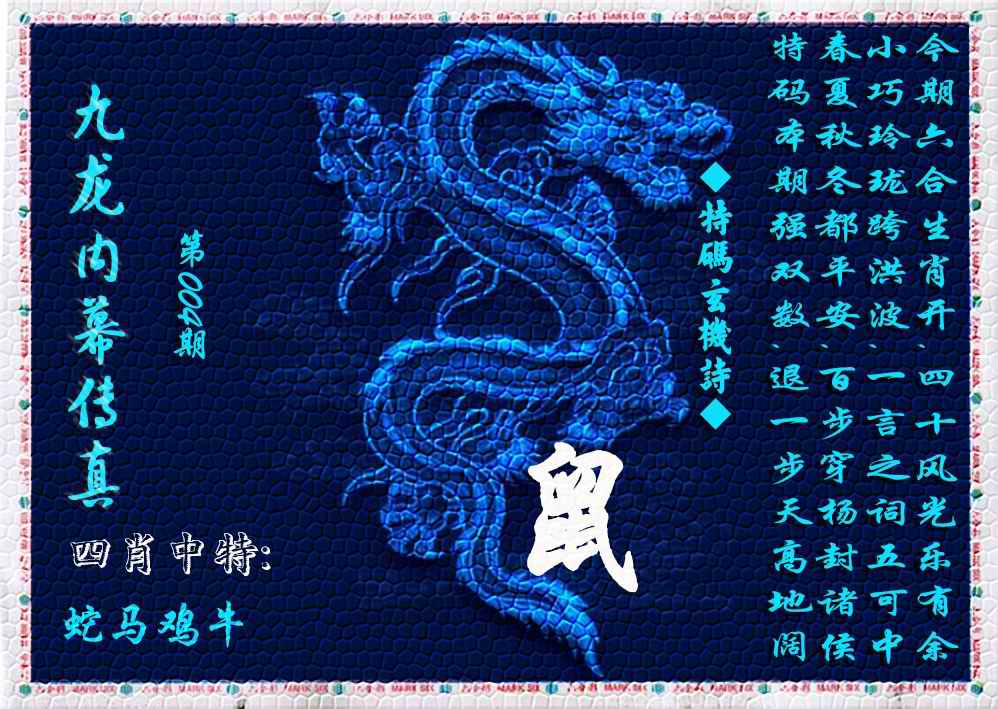 今期六合生肖开、四十风光乐有余
小巧玲珑跨洪波、一言之词五可中
春夏秋冬都平安、百步穿杨封诸侯
特码本期强双数、退一步天高地阔
◆特碼玄機詩◆
鼠
第004期
九龙内幕传真
四肖中特:
蛇马鸡牛